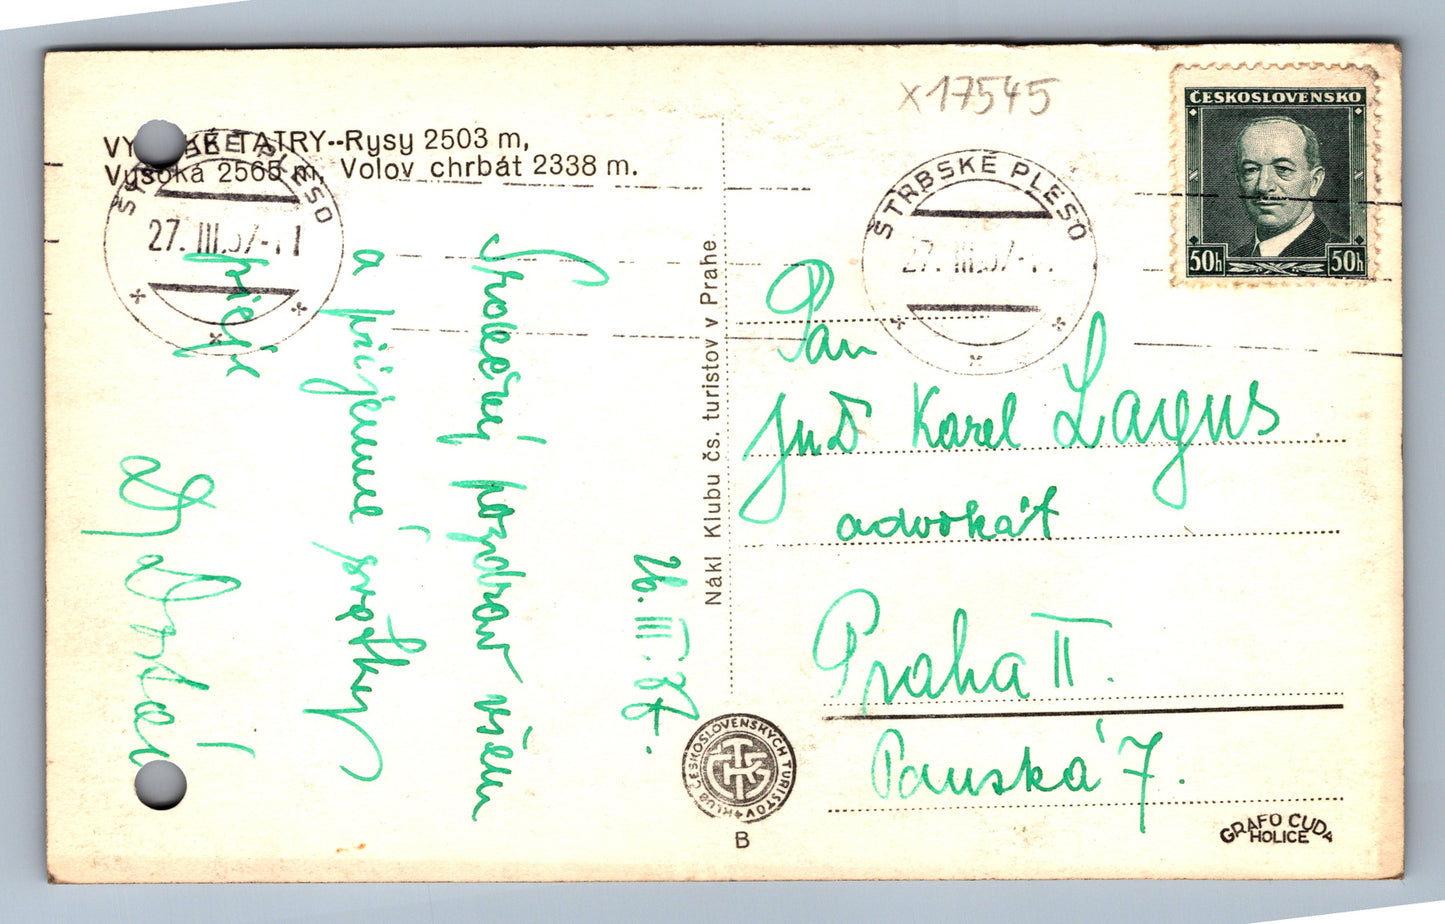 VYSOKÉ TATRY--Rysy 2503 m,
Vysoká 2565 m, Volov chrbát 2338 m.
ŠTRBSKÉ PLESO
27. III. 37-11
x17545
ŠTRBSKÉ PLESO
27. III. 37-11
ČESKOSLOVENSKO
50h 50h
26. III. 37.
Srdečný pozdrav všem
a příjemné svátky
přeje
Nákl Klubu čs. turistov v Prahe
Pan
JUD Karel Lagus
advokát
Praha II.
Panská 7.
KLUB ČESKOSLOVENSKÝCH TURISTOV
KČST
B
GRAFO ČUDA
HOLICE